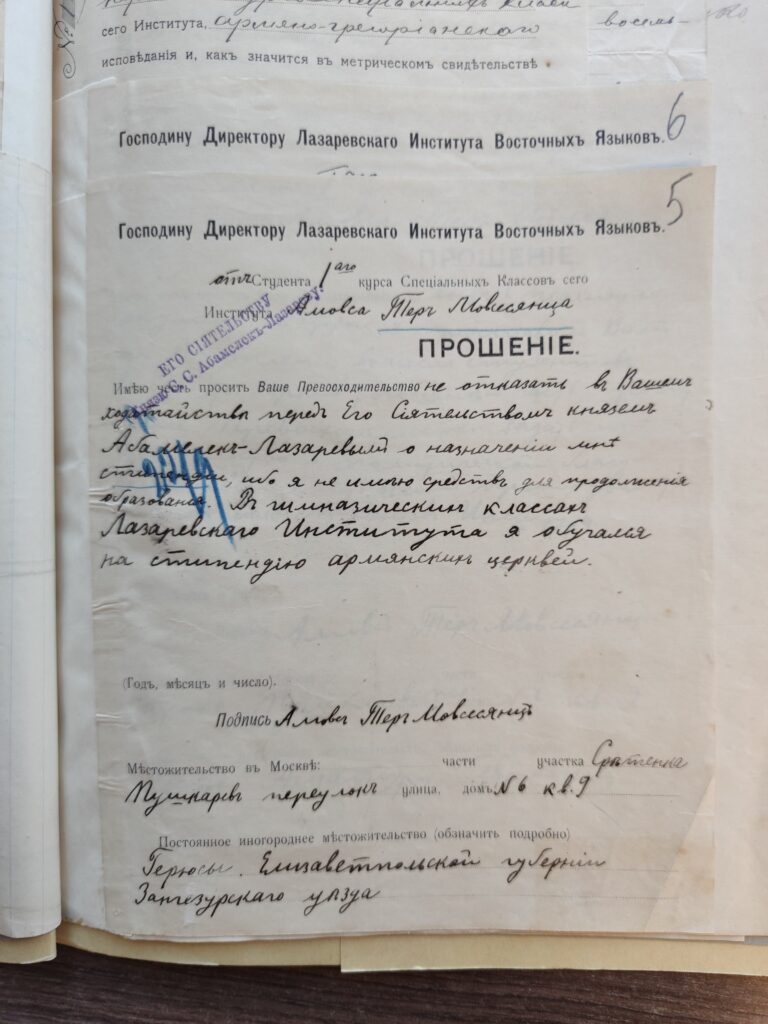 сего Института, армяно-грегоріанскаго
восемь-
исповѣданія и, какъ значится въ метрическомъ свидѣтельствѣ
Господину Директору Лазаревскаго Института Восточныхъ Языковъ.
6
Господину Директору Лазаревскаго Института Восточныхъ Языковъ.
5
отъ Студента 1аго курса Спеціальныхъ Классовъ сего
Института Амовса Теръ Мовсесянца
ЕГО СІЯТЕЛЬСТВУ
Князю С. С. Абамелекъ-Лазареву.
ПРОШЕНІЕ.
Имѣю честь просить Ваше Превосходительство не отказать въ Вашемъ
ходатайствѣ передъ Его Сіятельствомъ княземъ
Абамелекъ-Лазаревымъ о назначеніи мнѣ
стипендіи, ибо я не имѣю средствъ для продолженія
образованія. Въ гимназическихъ классахъ
Лазаревскаго Института я обучался
на стипендію армянскихъ церквей.
(Годъ, мѣсяцъ и число).
Подпись Амовсъ Теръ Мовсесянцъ
Мѣстожительство въ Москвѣ: части участка Срѣтенка
Пушкаревъ переулокъ улица, домъ №6 кв. 9
Постоянное иногороднее мѣстожительство (обзначить подробно)
Герюсы. Елизаветпольской губерніи
Зангезурскаго уѣзда